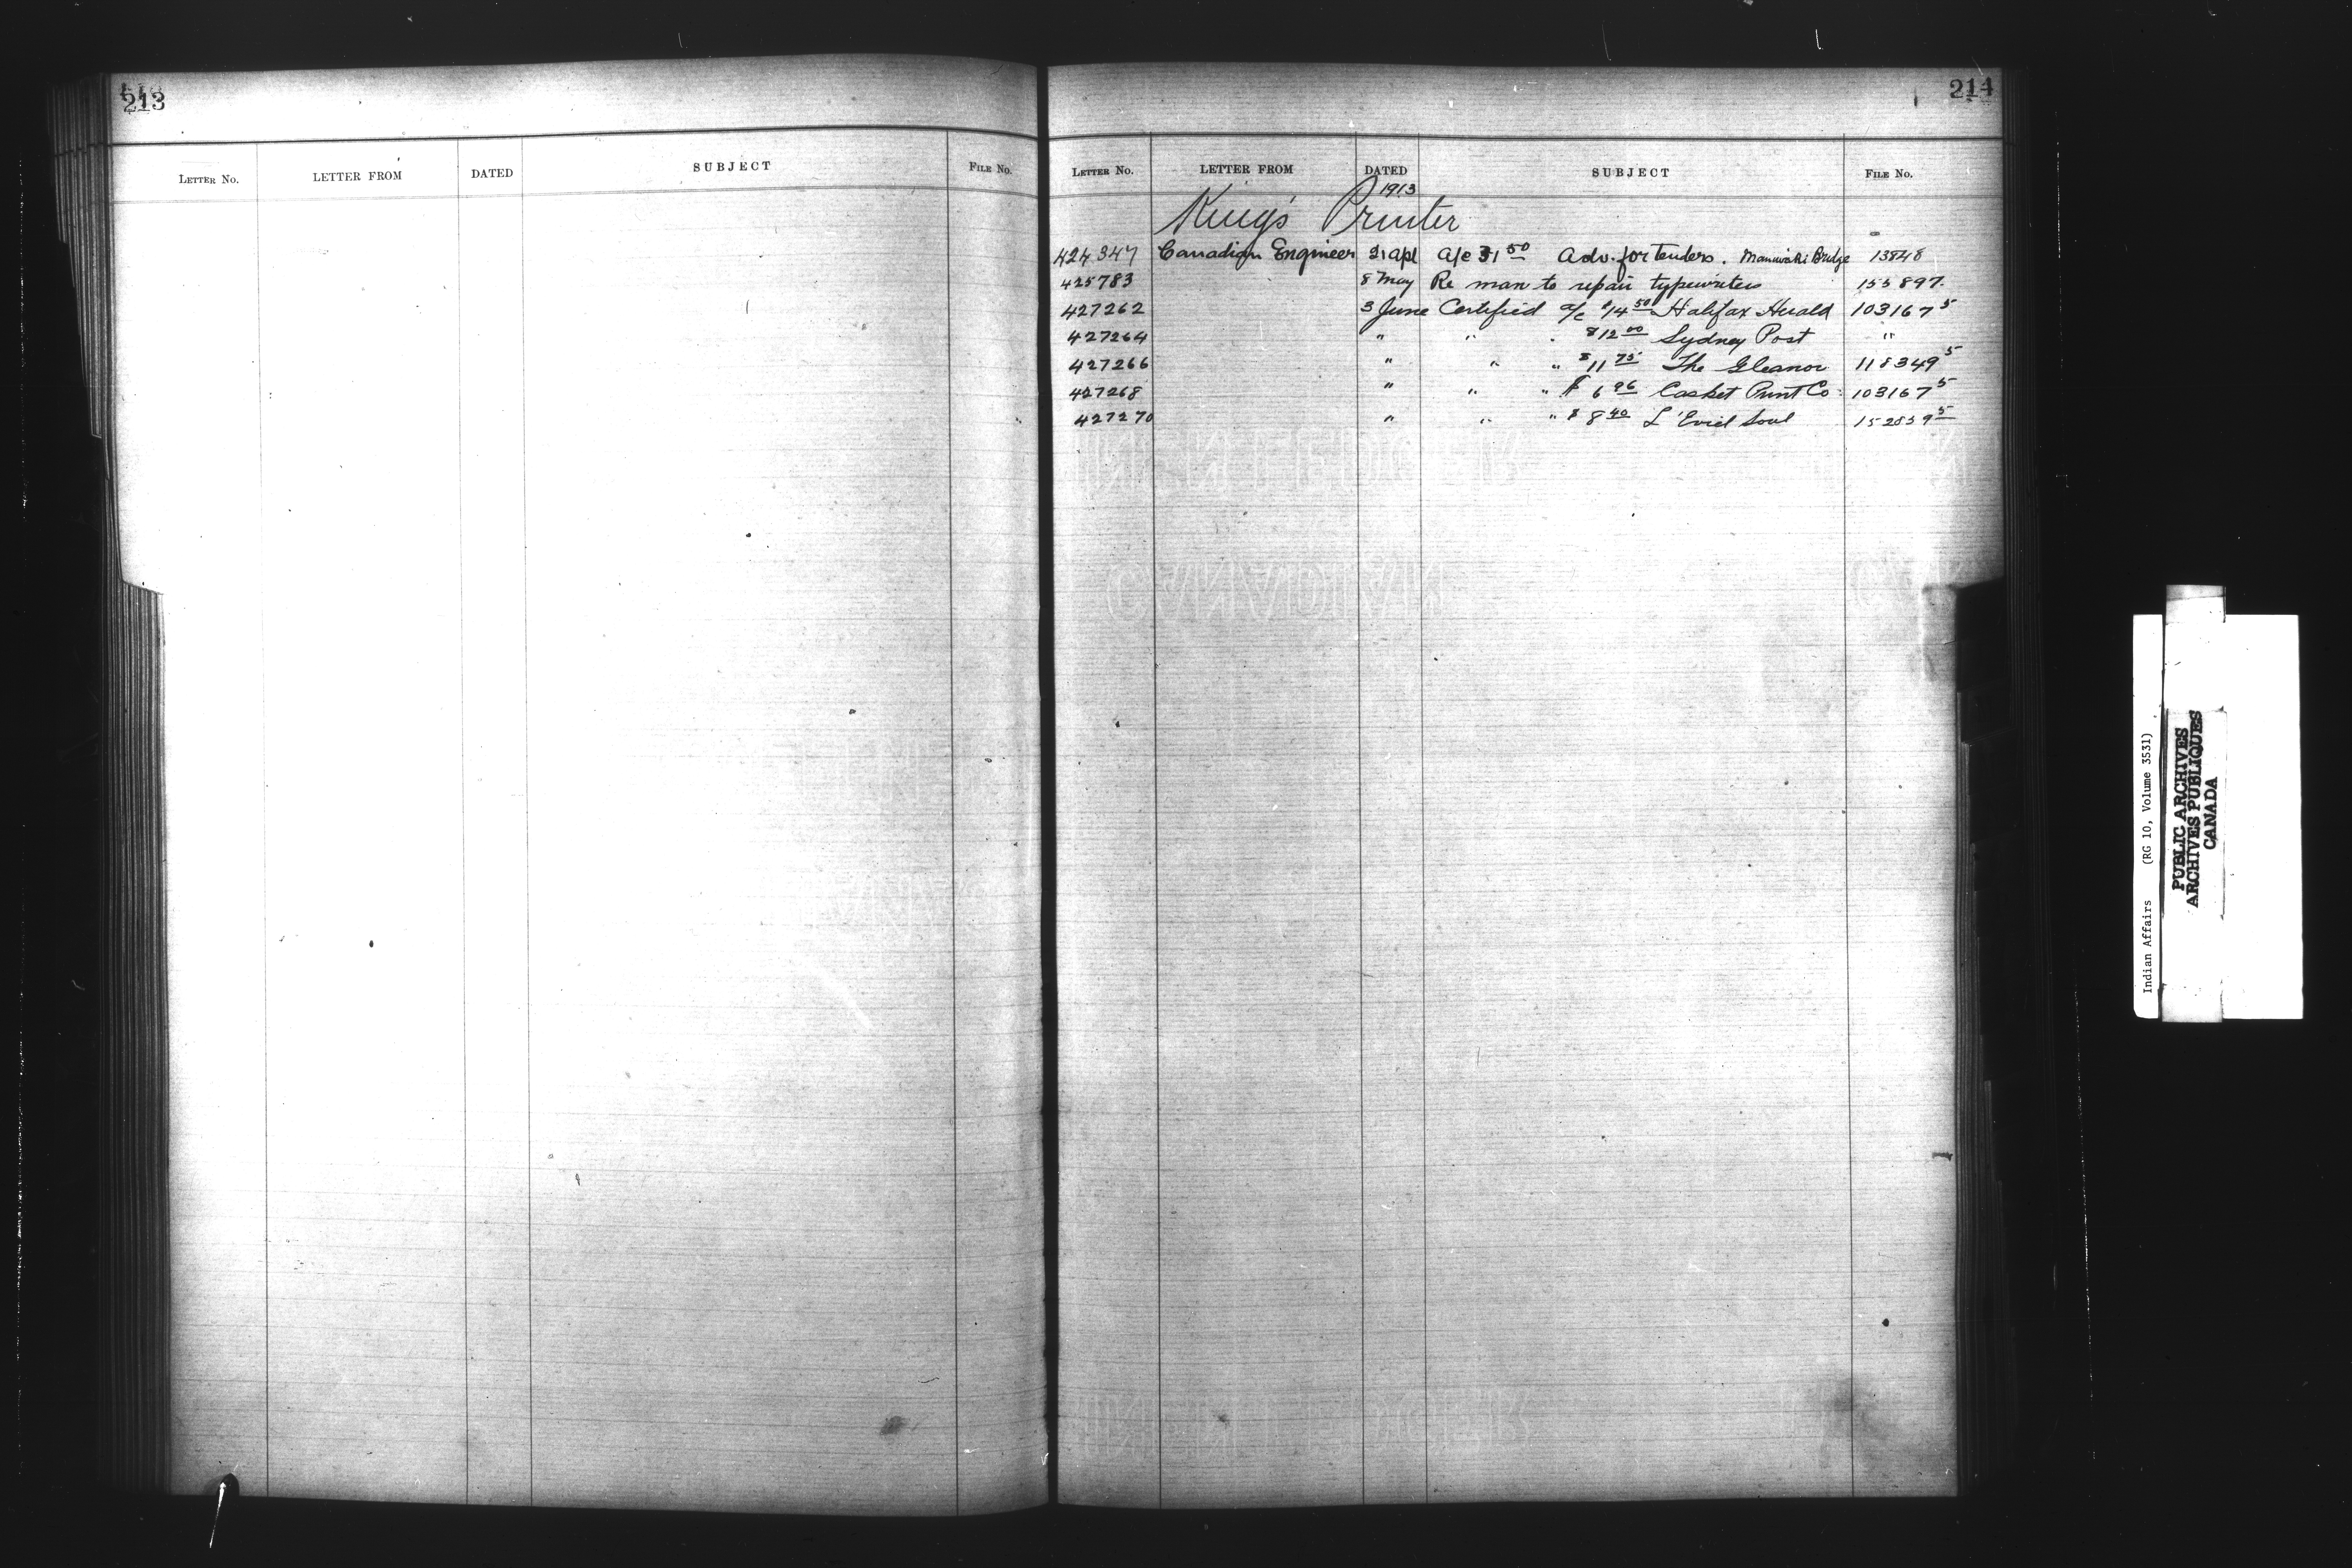 213
LETTER No. LETTER FROM DATED SUBJECT FILE No.
214
LETTER No. LETTER FROM DATED SUBJECT FILE No.
1913
King's Printer
424347 Canadian Engineer 21 Apl A/c 31 50 Adv. for tenders. Maniwaki Bridge 13848
425783 8 May Re man to repair typewriters 155897.
427262 3 June Certified a/c $14 50 Halifax Herald 103167 5
427264 " " . $12 00 Sydney Post "
427266 " " " $11 75 The Gleanor 118349 5
427268 " " " $ 6 96 Casket Print Co. 103167 5
427270 " " " $ 8 40 L'Evid Soul 152859 5
Indian Affairs (RG 10, Volume 3531)
PUBLIC ARCHIVES
ARCHIVES PUBLIQUES
CANADA